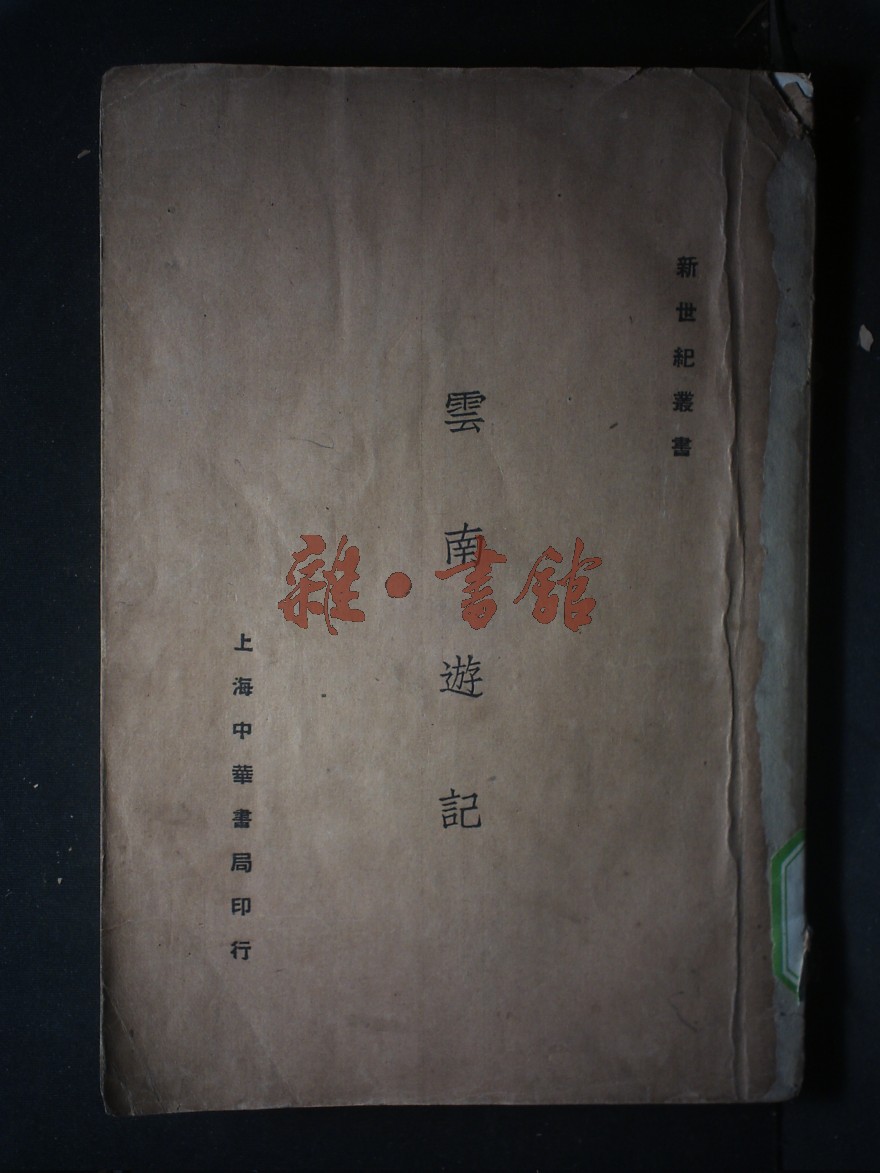 新世紀叢書
雲南遊記
上海中華書局印行
雜·書館